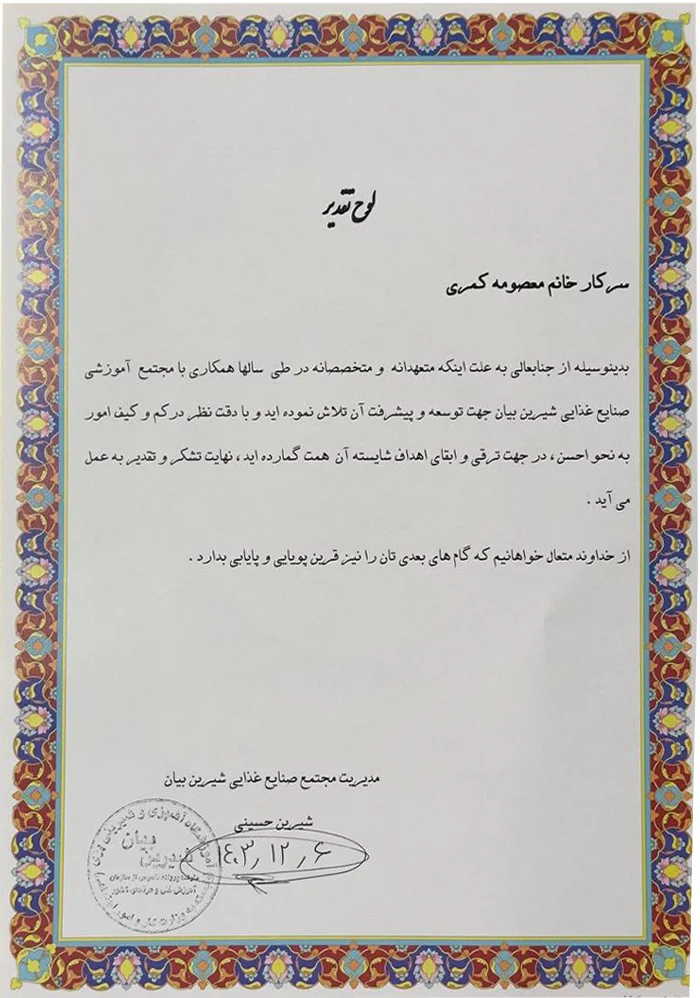 لوح تقدیر
سرکار خانم معصومه کمری
بدینوسیله از جنابعالی به علت اینکه متعهدانه و متخصصانه در طی سالها همکاری با مجتمع آموزشی
صنایع غذایی شیرین بیان جهت توسعه و پیشرفت آن تلاش نموده اید و با دقت نظر درکم و کیف امور
به نحو احسن ، در جهت ترقی و ابقای اهداف شایسته آن همت گمارده اید ، نهایت تشکر و تقدیر به عمل
می آید .
از خداوند متعال خواهانیم که گام های بعدی تان را نیز قرین پویایی و پایایی بدارد .
مدیریت مجتمع صنایع غذایی شیرین بیان
شیرین حسینی
۱۴۰۳,۱۲,۶
شیرین
بیان
آموزش فنی و حرفه‌ای کشور